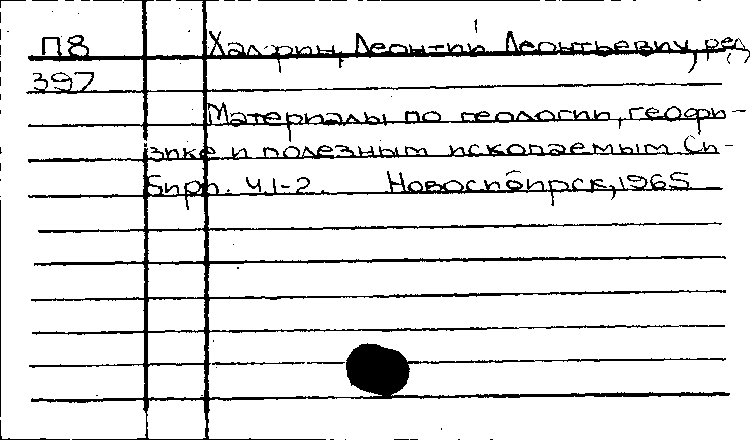 П8 Халфин, Леонтий Леонтьевич, ред
397
Материалы по геологии, геофи-
зике и полезным ископаемым Си-
бири. Ч.1-2. Новосибирск, 1965